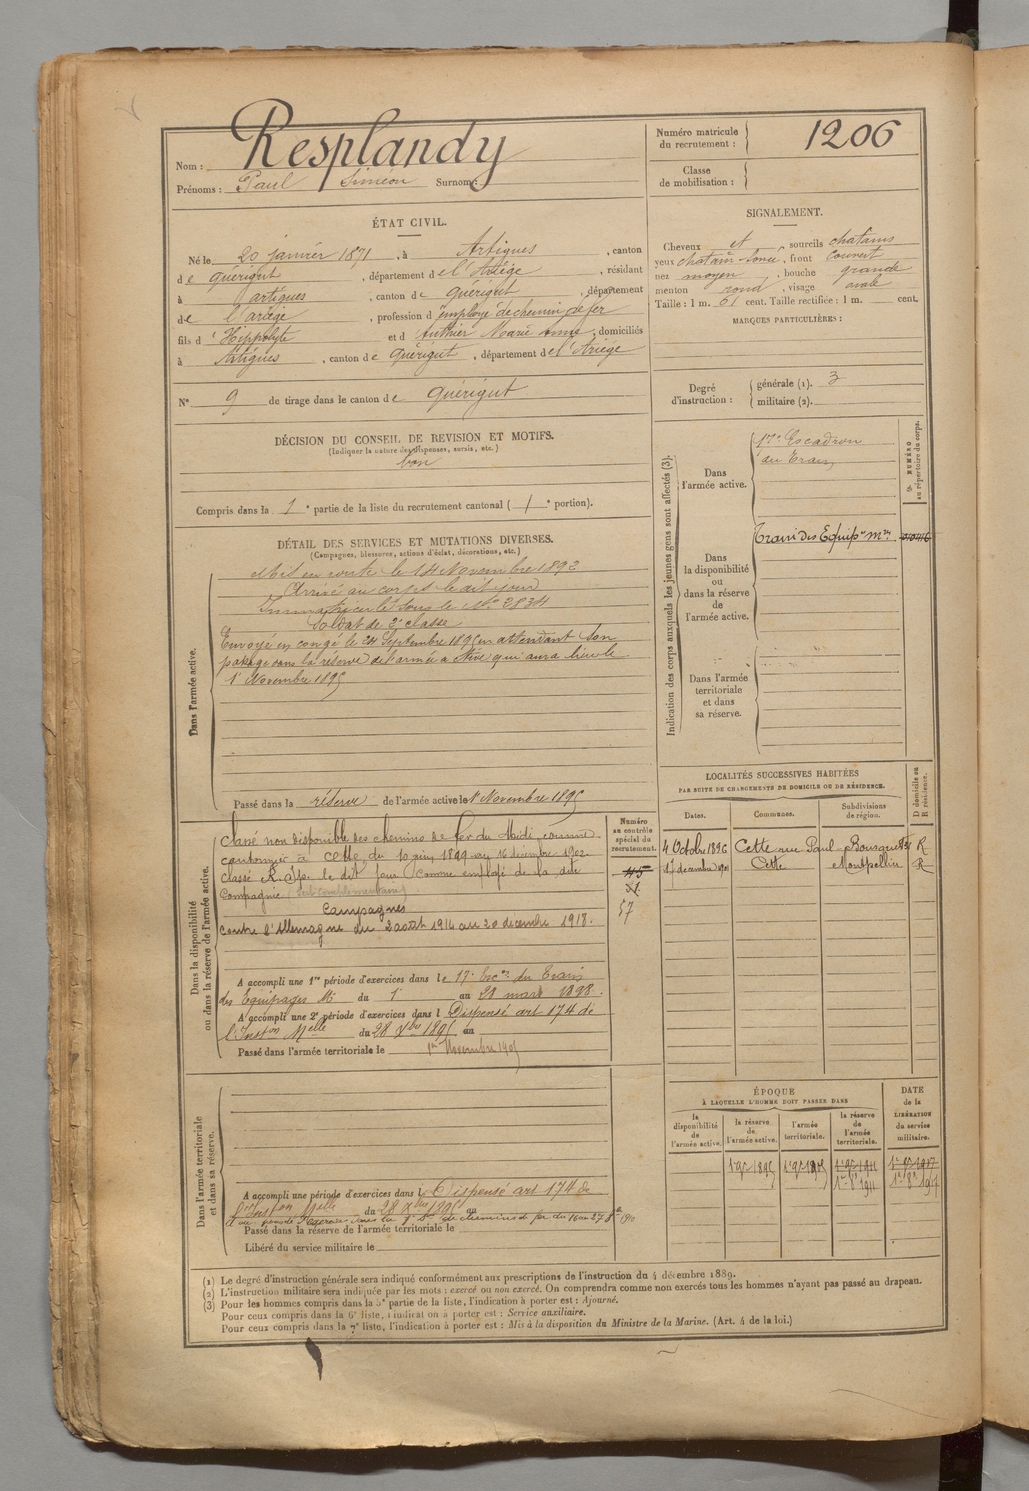 Nom : Resplandy
Prénoms : Paul Siméon Surnom :
Numéro matricule du recrutement : 1206
Classe de mobilisation :
ÉTAT CIVIL.
Né le 20 janvier 1871, à Artigues, canton
de Quérigut, département de l'Ariège, résidant
à Artigues, canton de Quérigut, département
de l'ariège, profession d'employé de chemin de fer
fils d'Hippolyte et d Authier Marie Anne, domiciliés
à Artigues, canton de Quérigut, département de l'Ariège
N° 9 de tirage dans le canton de Quérigut
DÉCISION DU CONSEIL DE REVISION ET MOTIFS.
(Indiquer la nature des dispenses, sursis, etc.)
bon
Compris dans la 1e partie de la liste du recrutement cantonal ( 1e portion).
DÉTAIL DES SERVICES ET MUTATIONS DIVERSES.
(Campagnes, blessures, actions d'éclat, décorations, etc.)
Dans l'armée active.
Mis en route le 14 Novembre 1892
Arrivé au corps le dit jour
Immatriculé sous le N° 2834
Soldat de 2e classe
Envoyé en congé le 24 Septembre 1895 en attendant son
passage dans la réserve de l'armée active qui aura lieu le
1er Novembre 1895
Passé dans la réserve de l'armée active le 1er Novembre 1895
Dans la disponibilité ou dans la réserve de l'armée active.
Classé non disponible des chemins de fer du Midi comme
cantonnier à Cette, du 10 juin 1899 au 16 décembre 1902
classé le dit jour comme employé de la dite
Compagnie
Campagnes
contre l'Allemagne du 2 août 1914 au 20 décembre 1918.
A accompli une 1re période d'exercices dans le 17e Esc. du Train
des Equipages Mi du 1er au 28 mars 1898.
A accompli une 2e période d'exercices dans l Dispensé art 174 de
l'Inston Melle du 28 Xbre 1895 au
Passé dans l'armée territoriale le 1er Novembre 1905
Numéro au contrôle spécial du recrutement.
57
Dans l'armée territoriale et dans sa réserve.
A accompli une période d'exercices dans l Dispensé art 174 de
l'Inston Melle du 28 Xbre 1895 au
Passé dans la réserve de l'armée territoriale le
Libéré du service militaire le
SIGNALEMENT.
Cheveux et, sourcils chatains
yeux chatain foncé, front couvert
nez moyen, bouche grande
menton rond, visage ovale
Taille : 1 m. 61 cent. Taille rectifiée : 1 m. cent.
MARQUES PARTICULIÈRES :
Degré d'instruction : générale (1). 3
militaire (2).
Indication des corps auxquels les jeunes gens sont affectés (3).
NUMÉRO au répertoire du corps.
Dans l'armée active.
17e Escadron
du Train
Dans la disponibilité ou dans la réserve de l'armée active.
Train des Equip. Mres
Dans l'armée territoriale et dans sa réserve.
LOCALITÉS SUCCESSIVES HABITÉES
PAR SUITE DE CHANGEMENTS DE DOMICILE OU DE RÉSIDENCE.
Dates. Communes. Subdivisions de région. D domicile ou R résidence.
4 Octobre 1896 Cette rue Paul Bousquet R
17 décembre 1901 Cette Montpellier R
ÉPOQUE
À LAQUELLE L'HOMME DOIT PASSER DANS
DATE de la LIBÉRATION du service militaire.
la disponibilité de l'armée active. la réserve de l'armée active. l'armée territoriale. la réserve de l'armée territoriale.
1er 9bre 1895 1er 9bre 1905 1er 9bre 1911 1er 9bre 1917
1er 8bre 1911 1er 8bre 1917
(1) Le degré d'instruction générale sera indiqué conformément aux prescriptions de l'instruction du 4 décembre 1889.
(2) L'instruction militaire sera indiquée par les mots : exercé ou non exercé. On comprendra comme non exercés tous les hommes n'ayant pas passé au drapeau.
(3) Pour les hommes compris dans la 5e partie de la liste, l'indication à porter est : Ajourné.
Pour ceux compris dans la 6e liste, l'indication à porter est : Service auxiliaire.
Pour ceux compris dans la 7e liste, l'indication à porter est : Mis à la disposition du Ministre de la Marine. (Art. 4 de la loi.)